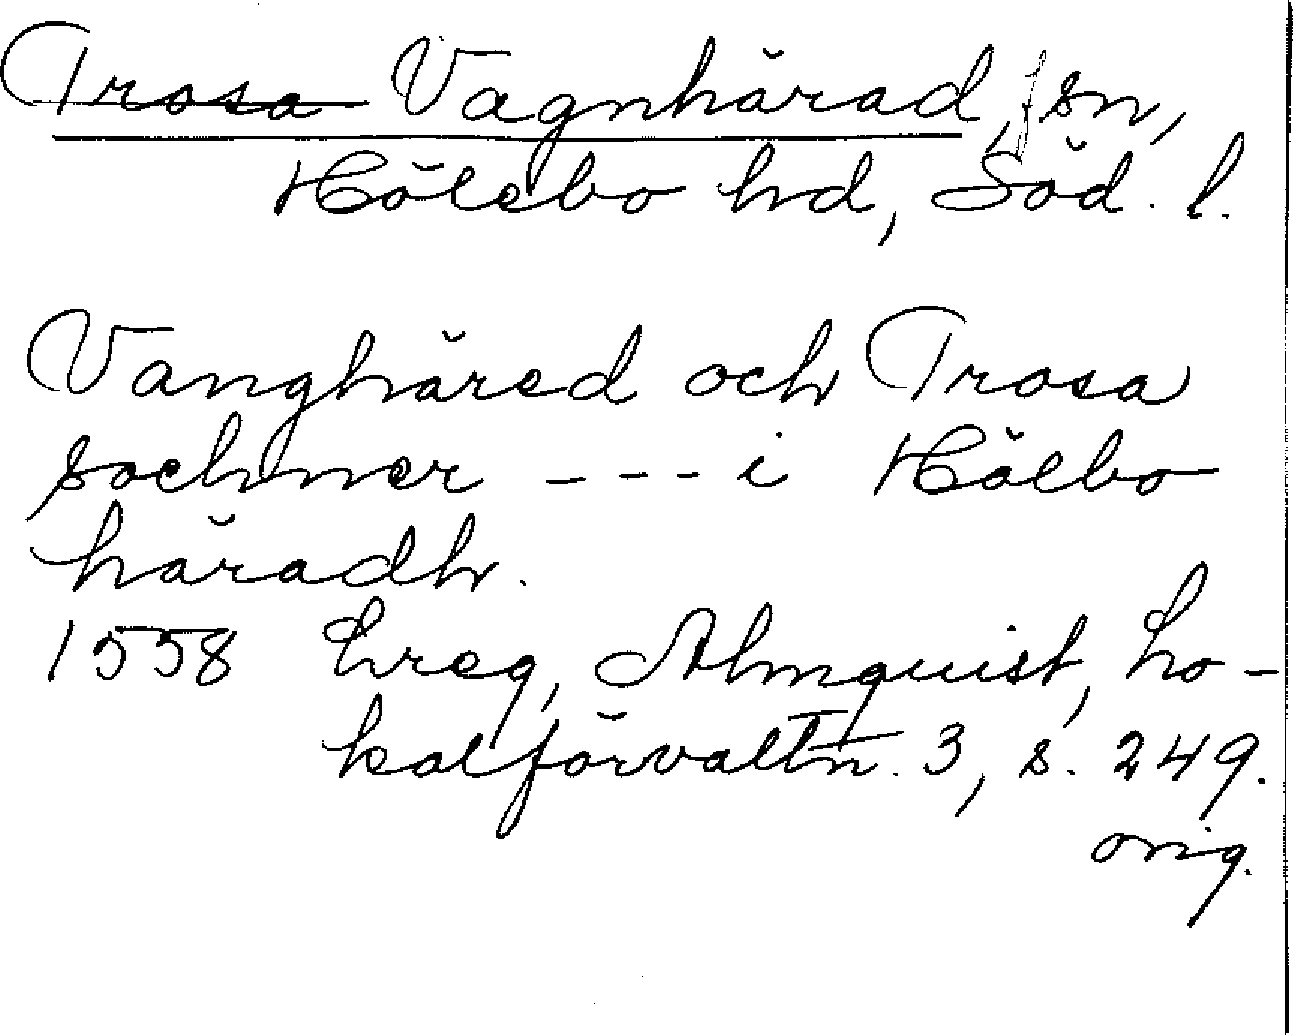 Trosa Vagnhärad, sn,
Hölebo hd, Söd. l.
Vanghäred och Trosa
sochner --- i Hölbo
häradh.
1558 Lreg, Almquist, Lo-
kalförvaltn. 3, s. 249.
orig.